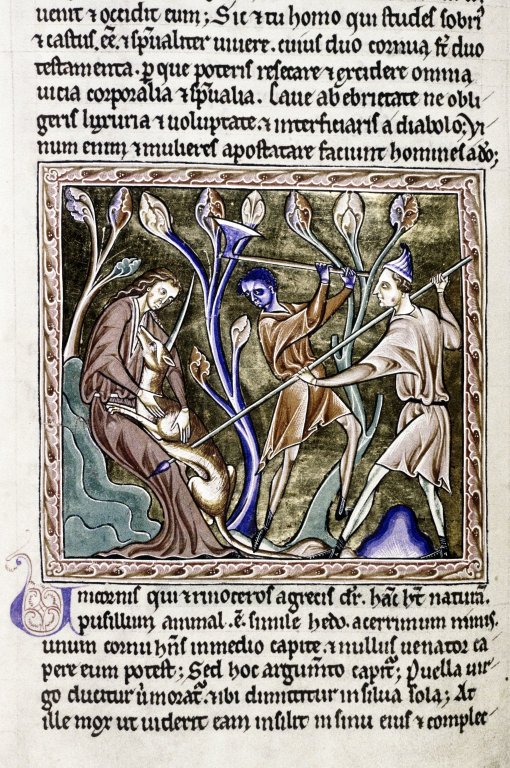 uenit ⁊ occidit eum; Sic ⁊ tu homo qui studes sobri
⁊ castus. eē. ⁊ sp̄ualiter uiuere. cuius duo cornua st̄ duo
testamenta. ꝑ que poteris resecare ⁊ excidere omnia
uicia corporalia ⁊ sp̄ualia. Caue ab ebrietate ne obli
geris luxuria ⁊ uoluptate. ⁊ interficiaris a diabolo; Vi
num enim ⁊ mulieres apostatare faciunt homines a do;
Unicornis qui ⁊ rinoceros a grecis dr̄. hāc ht̄ naturā.
pusillum animal. ē. simile hedo. acerrimum nimis.
unum cornu hn̄s in medio capite. ⁊ nullus uenator ca
pere eum potest; Sed hoc argum̄to capit̄; Puella uir
go ducitur ubi moratr̄. ⁊ ibi dimittitur in silua sola; At
ille mox ut uiderit eam insilit in sinu eius ⁊ complec